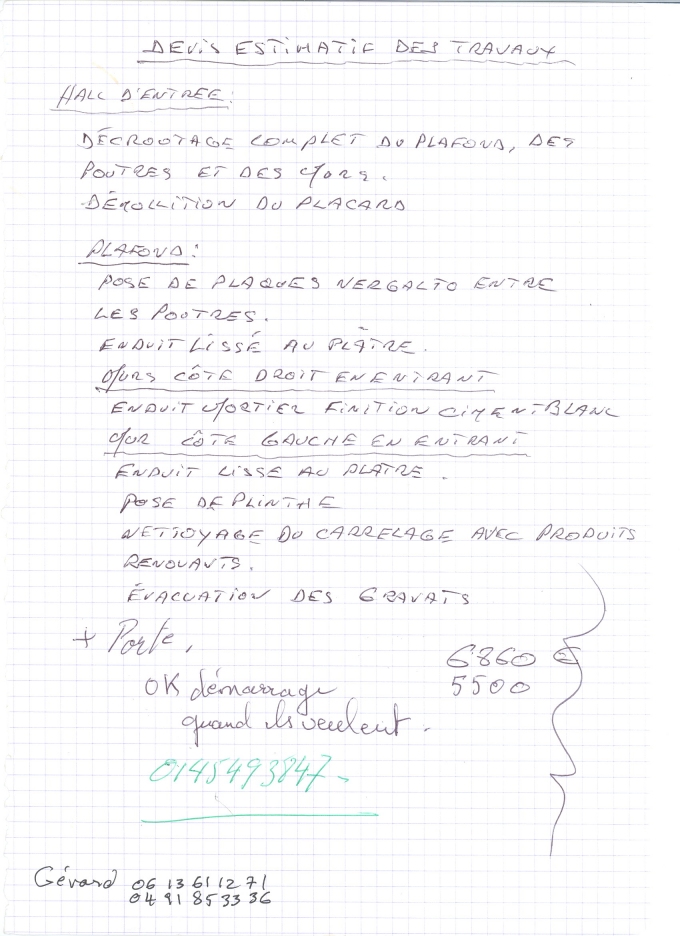 DEVIS ESTIMATIF DES TRAVAUX
HALL D'ENTREE:
DÉCROUTAGE COMPLET DU PLAFOND, DES
POUTRES ET DES MURS.
DÉMOLLITION DU PLACARD
PLAFOND:
POSE DE PLAQUES NERGALTO ENTRE
LES POUTRES.
ENDUIT LISSÉ AU PLÂTRE.
MURS CÔTÉ DROIT EN ENTRANT
ENDUIT MORTIER FINITION CIMENT BLANC
MUR CÔTÉ GAUCHE EN ENTRANT
ENDUIT LISSE AU PLATRE.
POSE DE PLINTHE
NETTOYAGE DU CARRELAGE AVEC PRODUITS
RENOVANTS.
ÉVACUATION DES GRAVATS
+ Porte,
6860 €
5500
OK démarrage
quand ils veulent.
0145493847-
Gérard 06 13 61 12 71
04 91 85 33 36